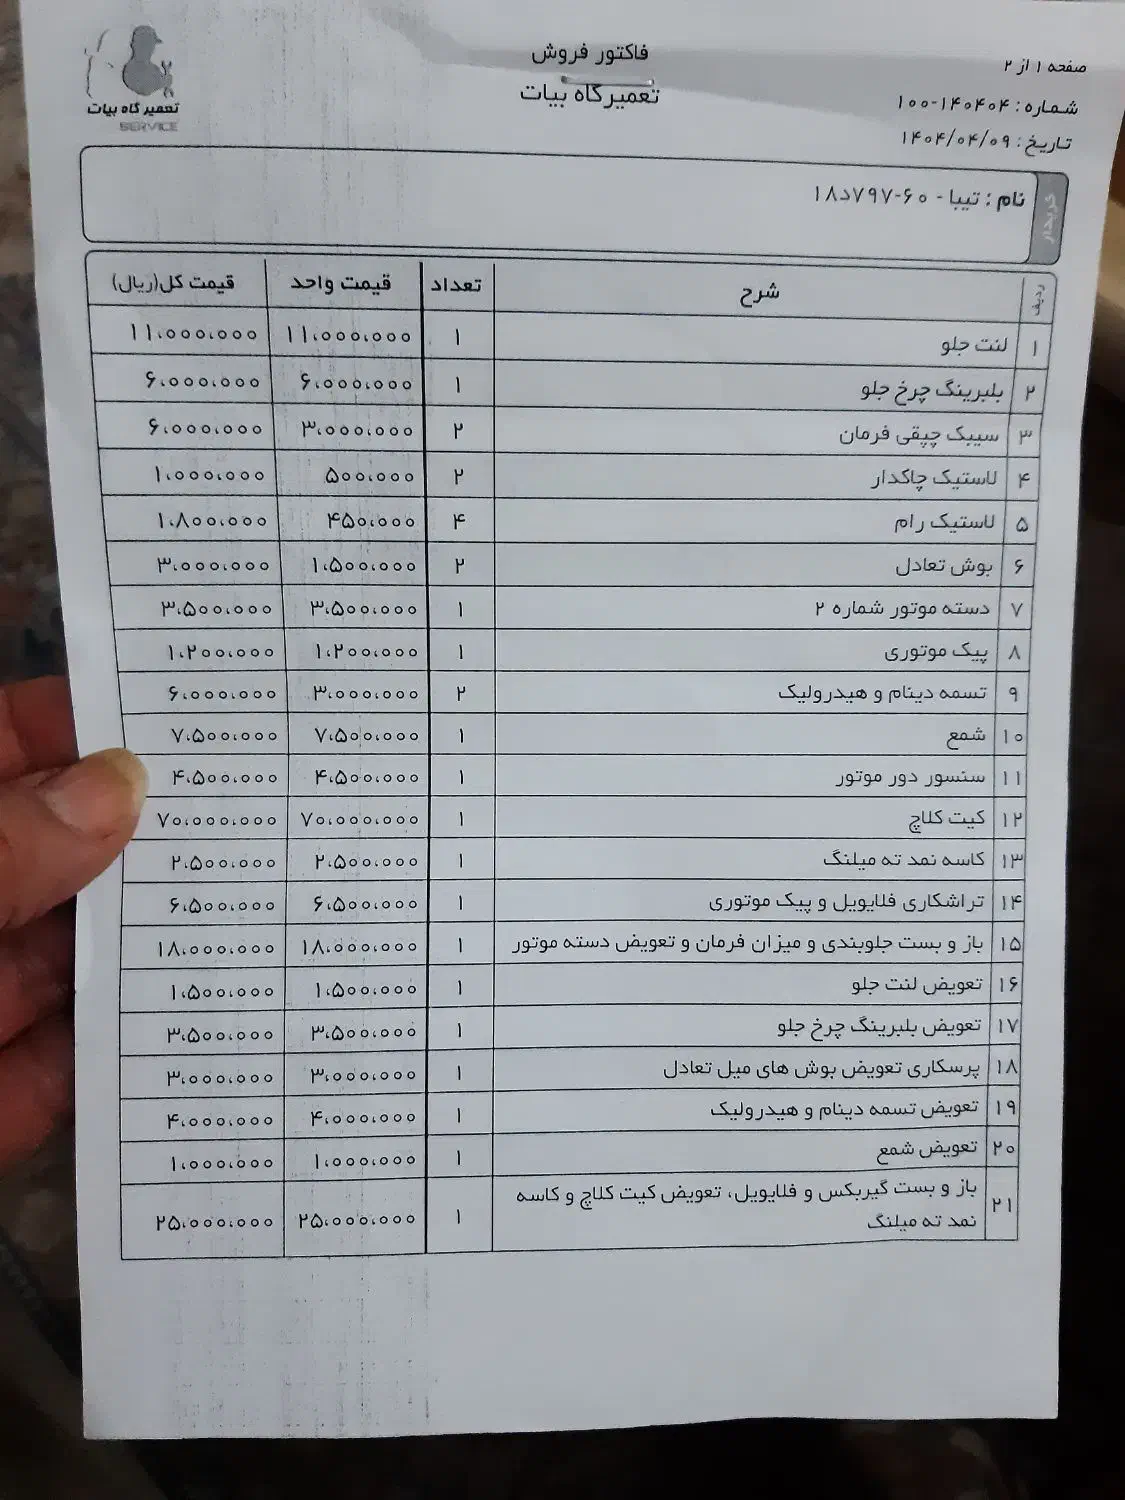 صفحه ۱ از ۲
فاکتور فروش
تعمیرگاه بیات
شماره : ۱۴۰۴۰۴-۱۰۰
تاریخ : ۱۴۰۴/۰۴/۰۹
تعمیر گاه بیات
SERVICE
خریدار
نام : تیبا - ۶۰-۷۹۷د۱۸
ردیف شرح تعداد قیمت واحد قیمت کل(ریال)
۱ لنت جلو ۱ ۱۱،۰۰۰،۰۰۰ ۱۱،۰۰۰،۰۰۰
۲ بلبرینگ چرخ جلو ۱ ۶،۰۰۰،۰۰۰ ۶،۰۰۰،۰۰۰
۳ سیبک چپقی فرمان ۲ ۳،۰۰۰،۰۰۰ ۶،۰۰۰،۰۰۰
۴ لاستیک چاکدار ۲ ۵۰۰،۰۰۰ ۱،۰۰۰،۰۰۰
۵ لاستیک رام ۴ ۴۵۰،۰۰۰ ۱،۸۰۰،۰۰۰
۶ بوش تعادل ۲ ۱،۵۰۰،۰۰۰ ۳،۰۰۰،۰۰۰
۷ دسته موتور شماره ۲ ۱ ۳،۵۰۰،۰۰۰ ۳،۵۰۰،۰۰۰
۸ پیک موتوری ۱ ۱،۲۰۰،۰۰۰ ۱،۲۰۰،۰۰۰
۹ تسمه دینام و هیدرولیک ۲ ۳،۰۰۰،۰۰۰ ۶،۰۰۰،۰۰۰
۱۰ شمع ۱ ۷،۵۰۰،۰۰۰ ۷،۵۰۰،۰۰۰
۱۱ سنسور دور موتور ۱ ۴،۵۰۰،۰۰۰ ۴،۵۰۰،۰۰۰
۱۲ کیت کلاچ ۱ ۷۰،۰۰۰،۰۰۰ ۷۰،۰۰۰،۰۰۰
۱۳ کاسه نمد ته میلنگ ۱ ۲،۵۰۰،۰۰۰ ۲،۵۰۰،۰۰۰
۱۴ تراشکاری فلایویل و پیک موتوری ۱ ۶،۵۰۰،۰۰۰ ۶،۵۰۰،۰۰۰
۱۵ باز و بست جلوبندی و میزان فرمان و تعویض دسته موتور ۱ ۱۸،۰۰۰،۰۰۰ ۱۸،۰۰۰،۰۰۰
۱۶ تعویض لنت جلو ۱ ۱،۵۰۰،۰۰۰ ۱،۵۰۰،۰۰۰
۱۷ تعویض بلبرینگ چرخ جلو ۱ ۳،۵۰۰،۰۰۰ ۳،۵۰۰،۰۰۰
۱۸ پرسکاری تعویض بوش های میل تعادل ۱ ۳،۰۰۰،۰۰۰ ۳،۰۰۰،۰۰۰
۱۹ تعویض تسمه دینام و هیدرولیک ۱ ۴،۰۰۰،۰۰۰ ۴،۰۰۰،۰۰۰
۲۰ تعویض شمع ۱ ۱،۰۰۰،۰۰۰ ۱،۰۰۰،۰۰۰
۲۱ باز و بست گیربکس و فلایویل، تعویض کیت کلاچ و کاسه
نمد ته میلنگ ۱ ۲۵،۰۰۰،۰۰۰ ۲۵،۰۰۰،۰۰۰